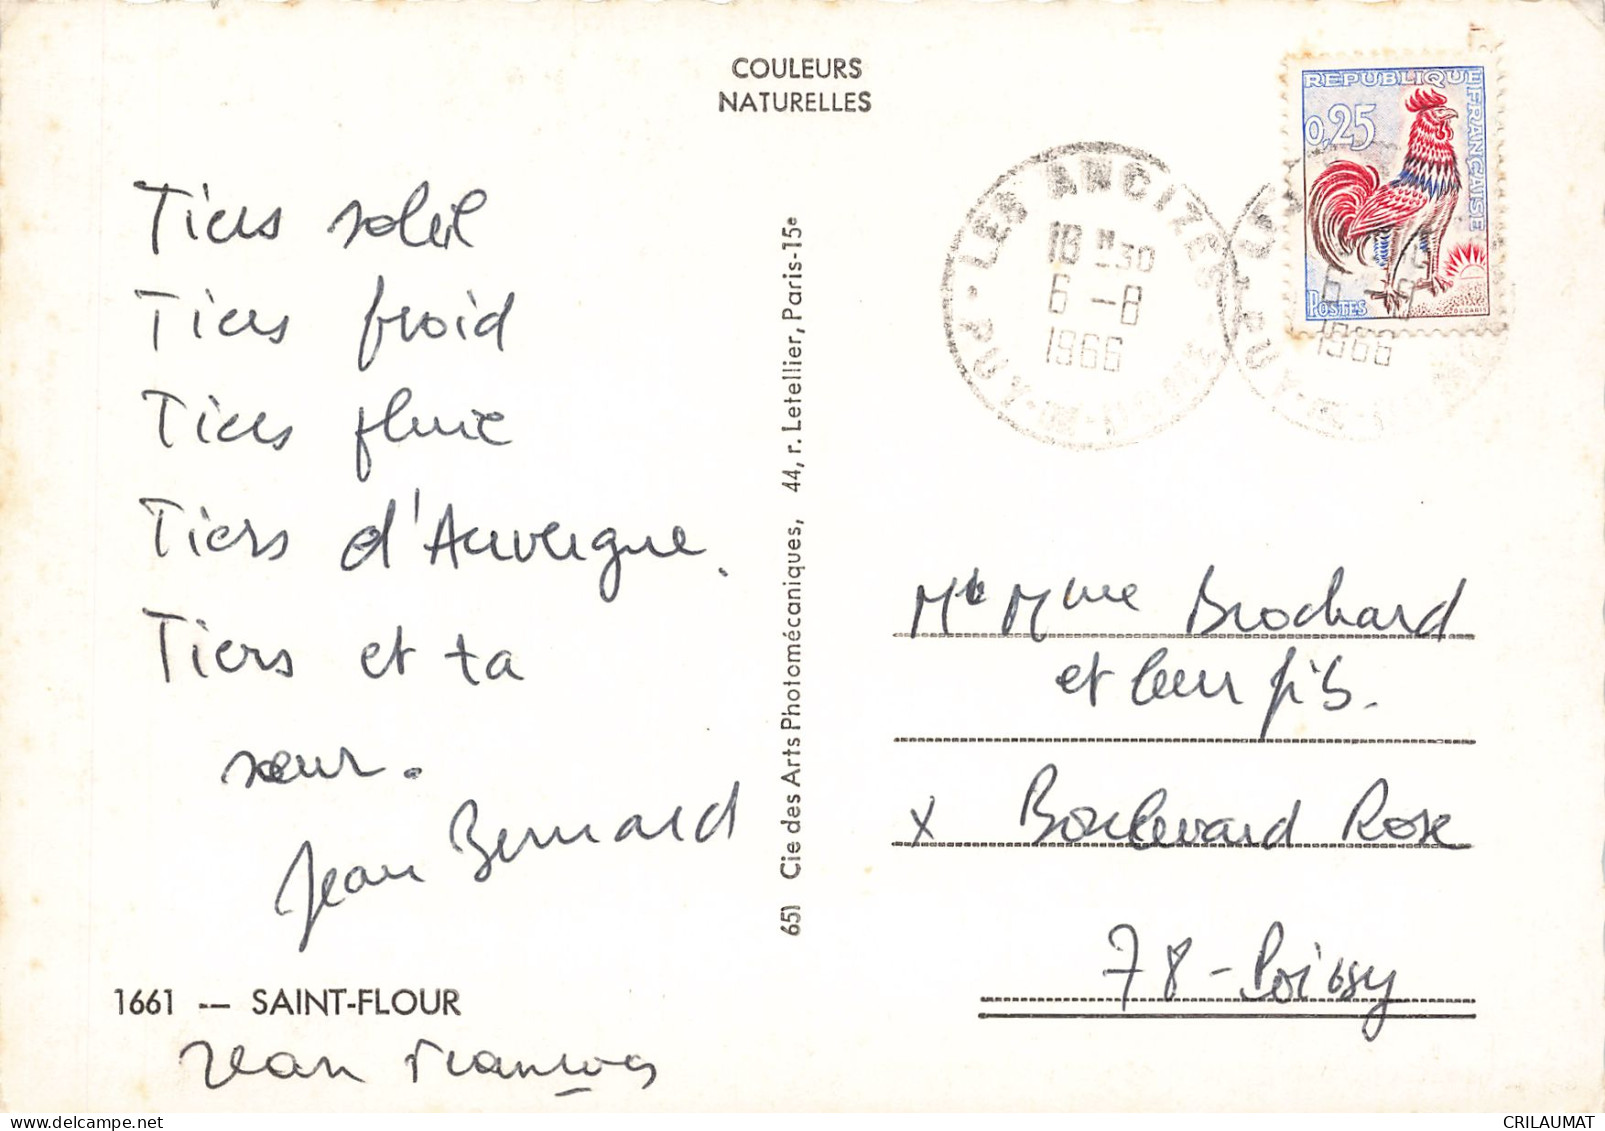 COULEURS
NATURELLES
REPUBLIQUE FRANÇAISE
0,25
POSTES
DECARIS
LES ANCIZES
18 H -30
6 -8
1966
P.-DE-D.
6 -8
1966
Tiers soleil
Tiers froid
Tiers pluie
Tiers d'Auvergne.
Tiers et ta
sœur.
Jean Bernard
1661 -- SAINT-FLOUR
Jean François
651 Cie des Arts Photomécaniques, 44, r. Letellier, Paris-15e
Mr Mme Brochard
et leur fils.
x Boulevard Rose
78 - Poissy
CRILAUMAT